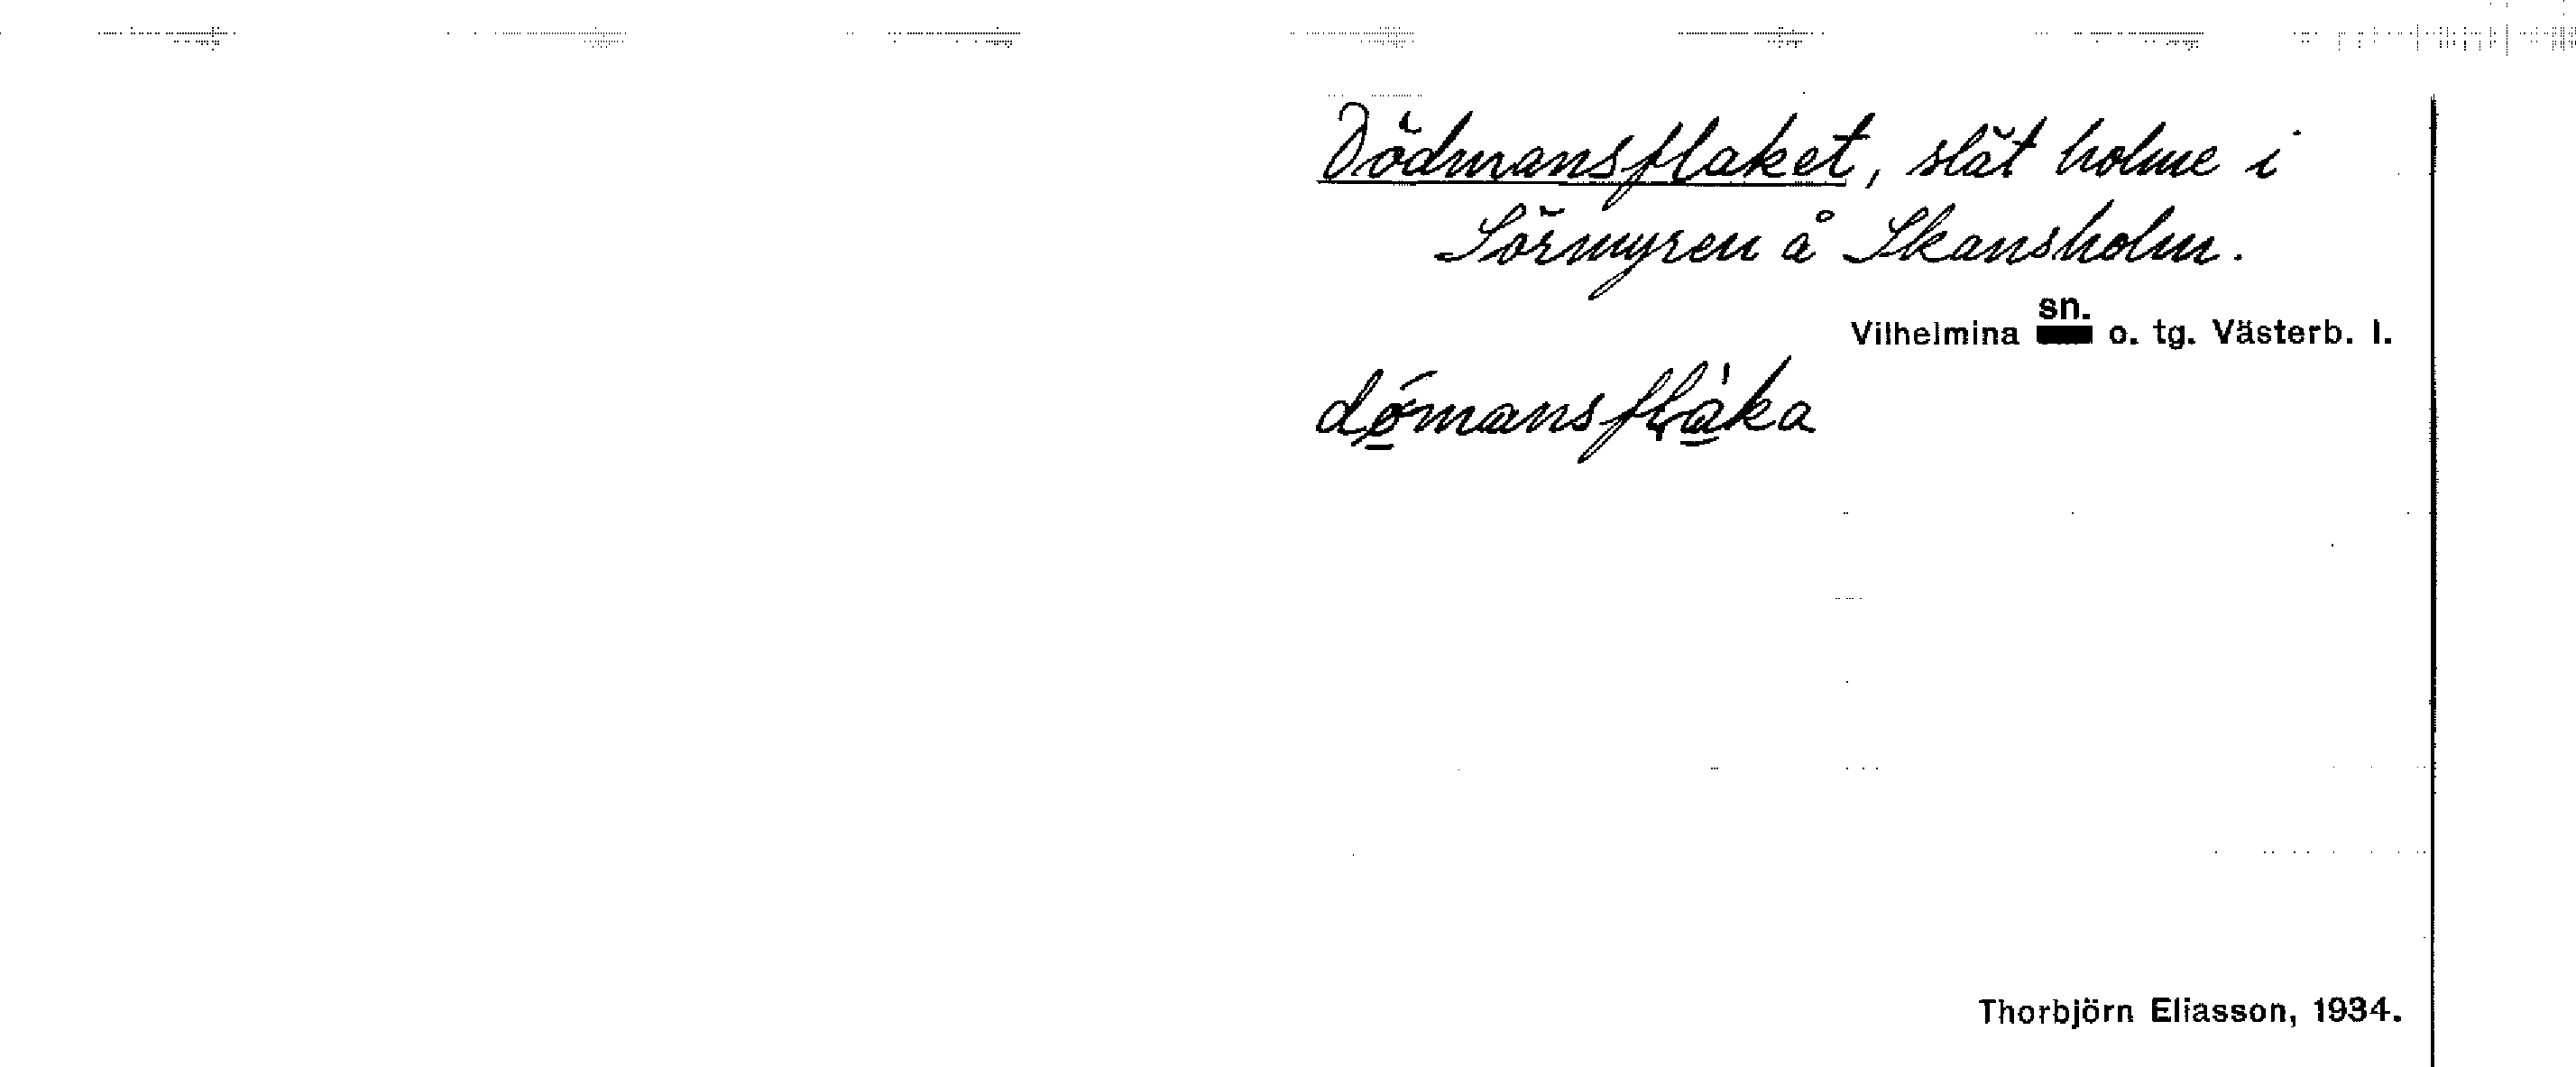 Dödmansflaket, slät holme i
Sörmyren å Skansholm.
sn.
Vilhelmina o. tg. Västerb. l.
dǿmansflàka
Thorbjörn Eliasson, 1934.